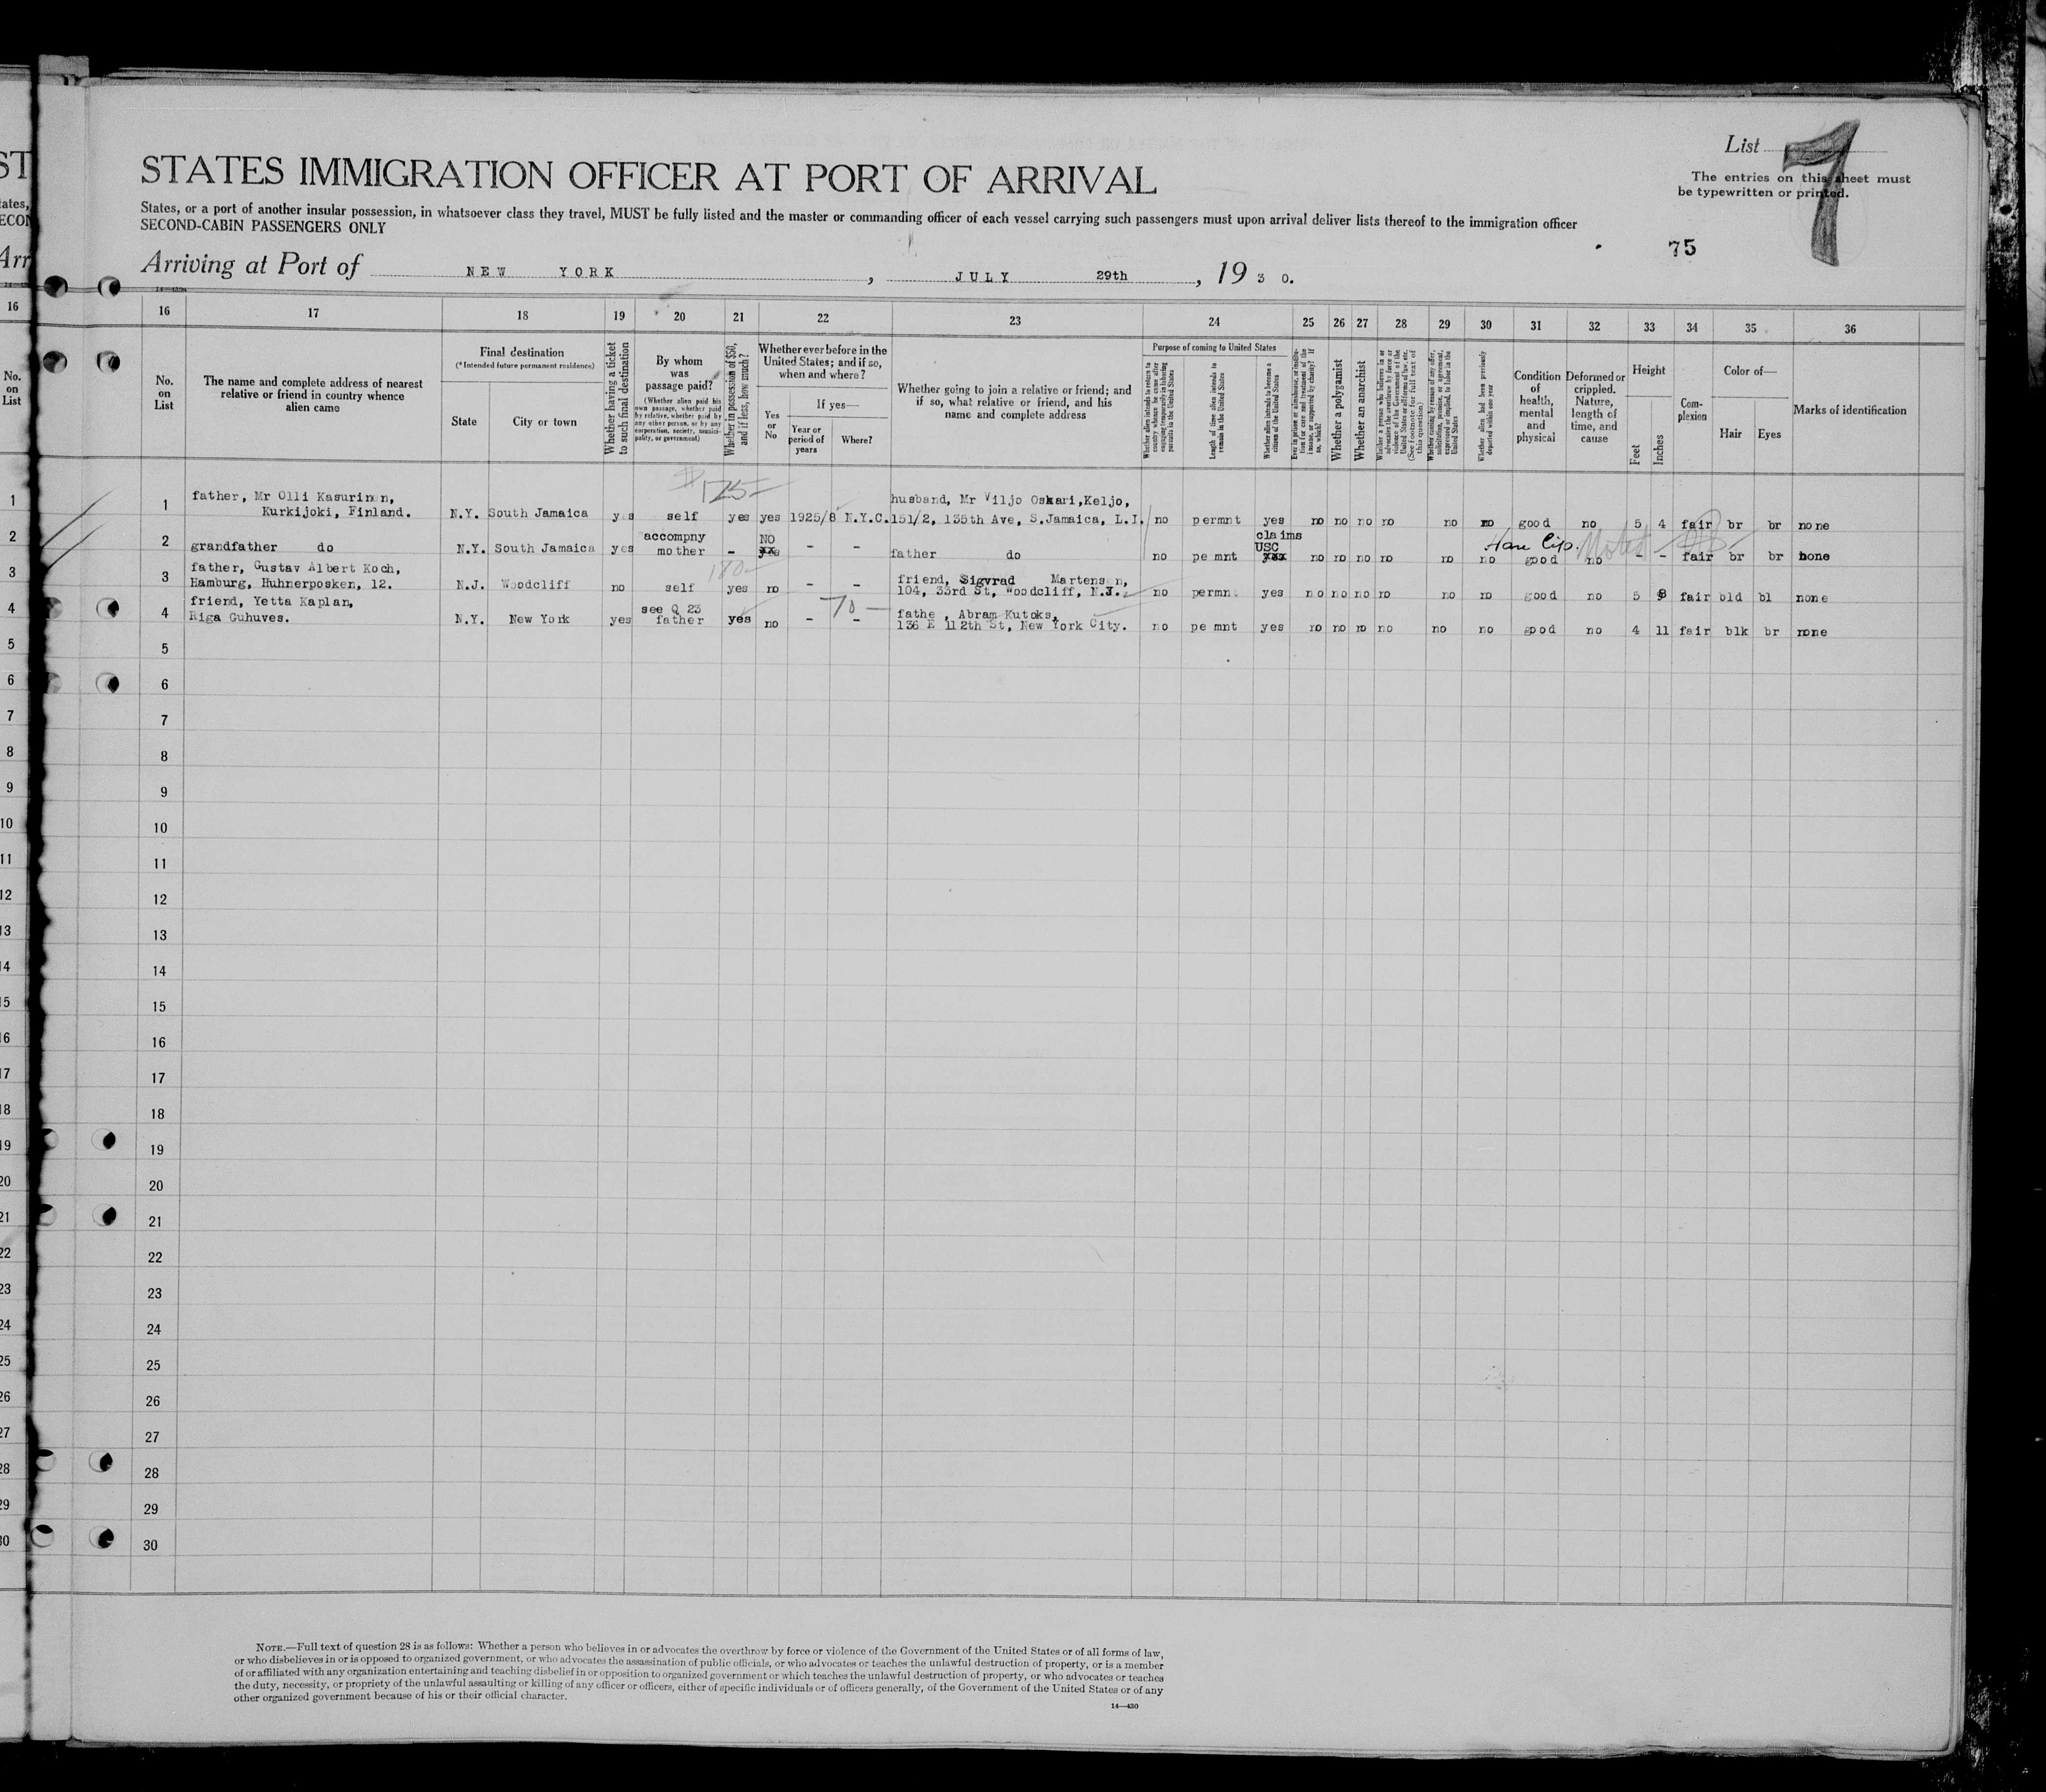 ST
STATES IMMIGRATION OFFICER AT PORT OF ARRIVAL
List 7
The entries on this sheet must
be typewritten or printed.
States, or a port of another insular possession, in whatsoever class they travel, MUST be fully listed and the master or commanding officer of each vessel carrying such passengers must upon arrival deliver lists thereof to the immigration officer
SECOND-CABIN PASSENGERS ONLY
75
Arriving at Port of NEW YORK, JULY 29th, 1930.
16 17 18 19 20 21 22 23 24 25 26 27 28 29 30 31 32 33 34 35 36
No. on List
The name and complete address of nearest relative or friend in country whence alien came
Final destination
(*Intended future permanent residence)
State
City or town
Whether having a ticket to such final destination
By whom was passage paid?
(Whether alien paid his own passage, whether paid by relative, whether paid by any other person, or by any corporation, society, municipality, or government)
Whether in possession of $50, and if less, how much?
Whether ever before in the United States; and if so, when and where?
Yes or No
If yes—
Year or period of years
Where?
Whether going to join a relative or friend; and if so, what relative or friend, and his name and complete address
Purpose of coming to United States
Whether alien intends to return to country whence he came after engaging temporarily in laboring pursuits in the United States
Length of time alien intends to remain in the United States
Whether alien intends to become a citizen of the United States
Ever in prison or almshouse, or institution for care and treatment of the insane, or supported by charity? If so, which?
Whether a polygamist
Whether an anarchist
Whether a person who believes in or advocates the overthrow by force or violence of the Government of the United States or all forms of law, etc. (See footnote for full text of this question)
Whether coming by reason of any offer, solicitation, promise, or agreement, expressed or implied, to labor in the United States
Whether alien had been previously deported within one year
Condition of health, mental and physical
Deformed or crippled. Nature, length of time, and cause
Height
Feet
Inches
Complexion
Color of—
Hair
Eyes
Marks of identification
$175
1 father, Mr Olli Kasurinen,
Kurkijoki, Finland. N.Y. South Jamaica yes self yes yes 1925/8 N.Y.C. husband, Mr Viljo Oskari,Keljo,
151/2, 135th Ave, S.Jamaica, L.I. no permnt yes no no no no no no good no 5 4 fair br br none
2 grandfather do N.Y. South Jamaica yes accompny
mother - NO - - father do no pe mnt claims
USC no no no no no no Hare lip. good no - - fair br br none
3 father, Gustav Albert Koch,
Hamburg, Huhnerposken, 12. N.J. Woodcliff no self 180 yes no - - friend, Sigvrad Martensen,
104, 33rd St, Woodcliff, N.J. no permn yes no no no no no no good no 5 8 fair bld bl none
4 friend, Yetta Kaplan,
Riga Guhuves. N.Y. New York yes see Q 23
father yes no - - 70 fathe , Abram Kutoks,
136 E 112th St, New York City. no pe mnt yes no no no no no no good no 4 11 fair blk br none
5
6
7
8
9
10
11
12
13
14
15
16
17
18
19
20
21
22
23
24
25
26
27
28
29
30
NOTE.—Full text of question 28 is as follows: Whether a person who believes in or advocates the overthrow by force or violence of the Government of the United States or of all forms of law,
or who disbelieves in or is opposed to organized government, or who advocates the assassination of public officials, or who advocates or teaches the unlawful destruction of property, or is a member
of or affiliated with any organization entertaining and teaching disbelief in or opposition to organized government or which teaches the unlawful destruction of property, or who advocates or teaches
the duty, necessity, or propriety of the unlawful assaulting or killing of any officer or officers, either of specific individuals or of officers generally, of the Government of the United States or of any
other organized government because of his or their official character.
14—430